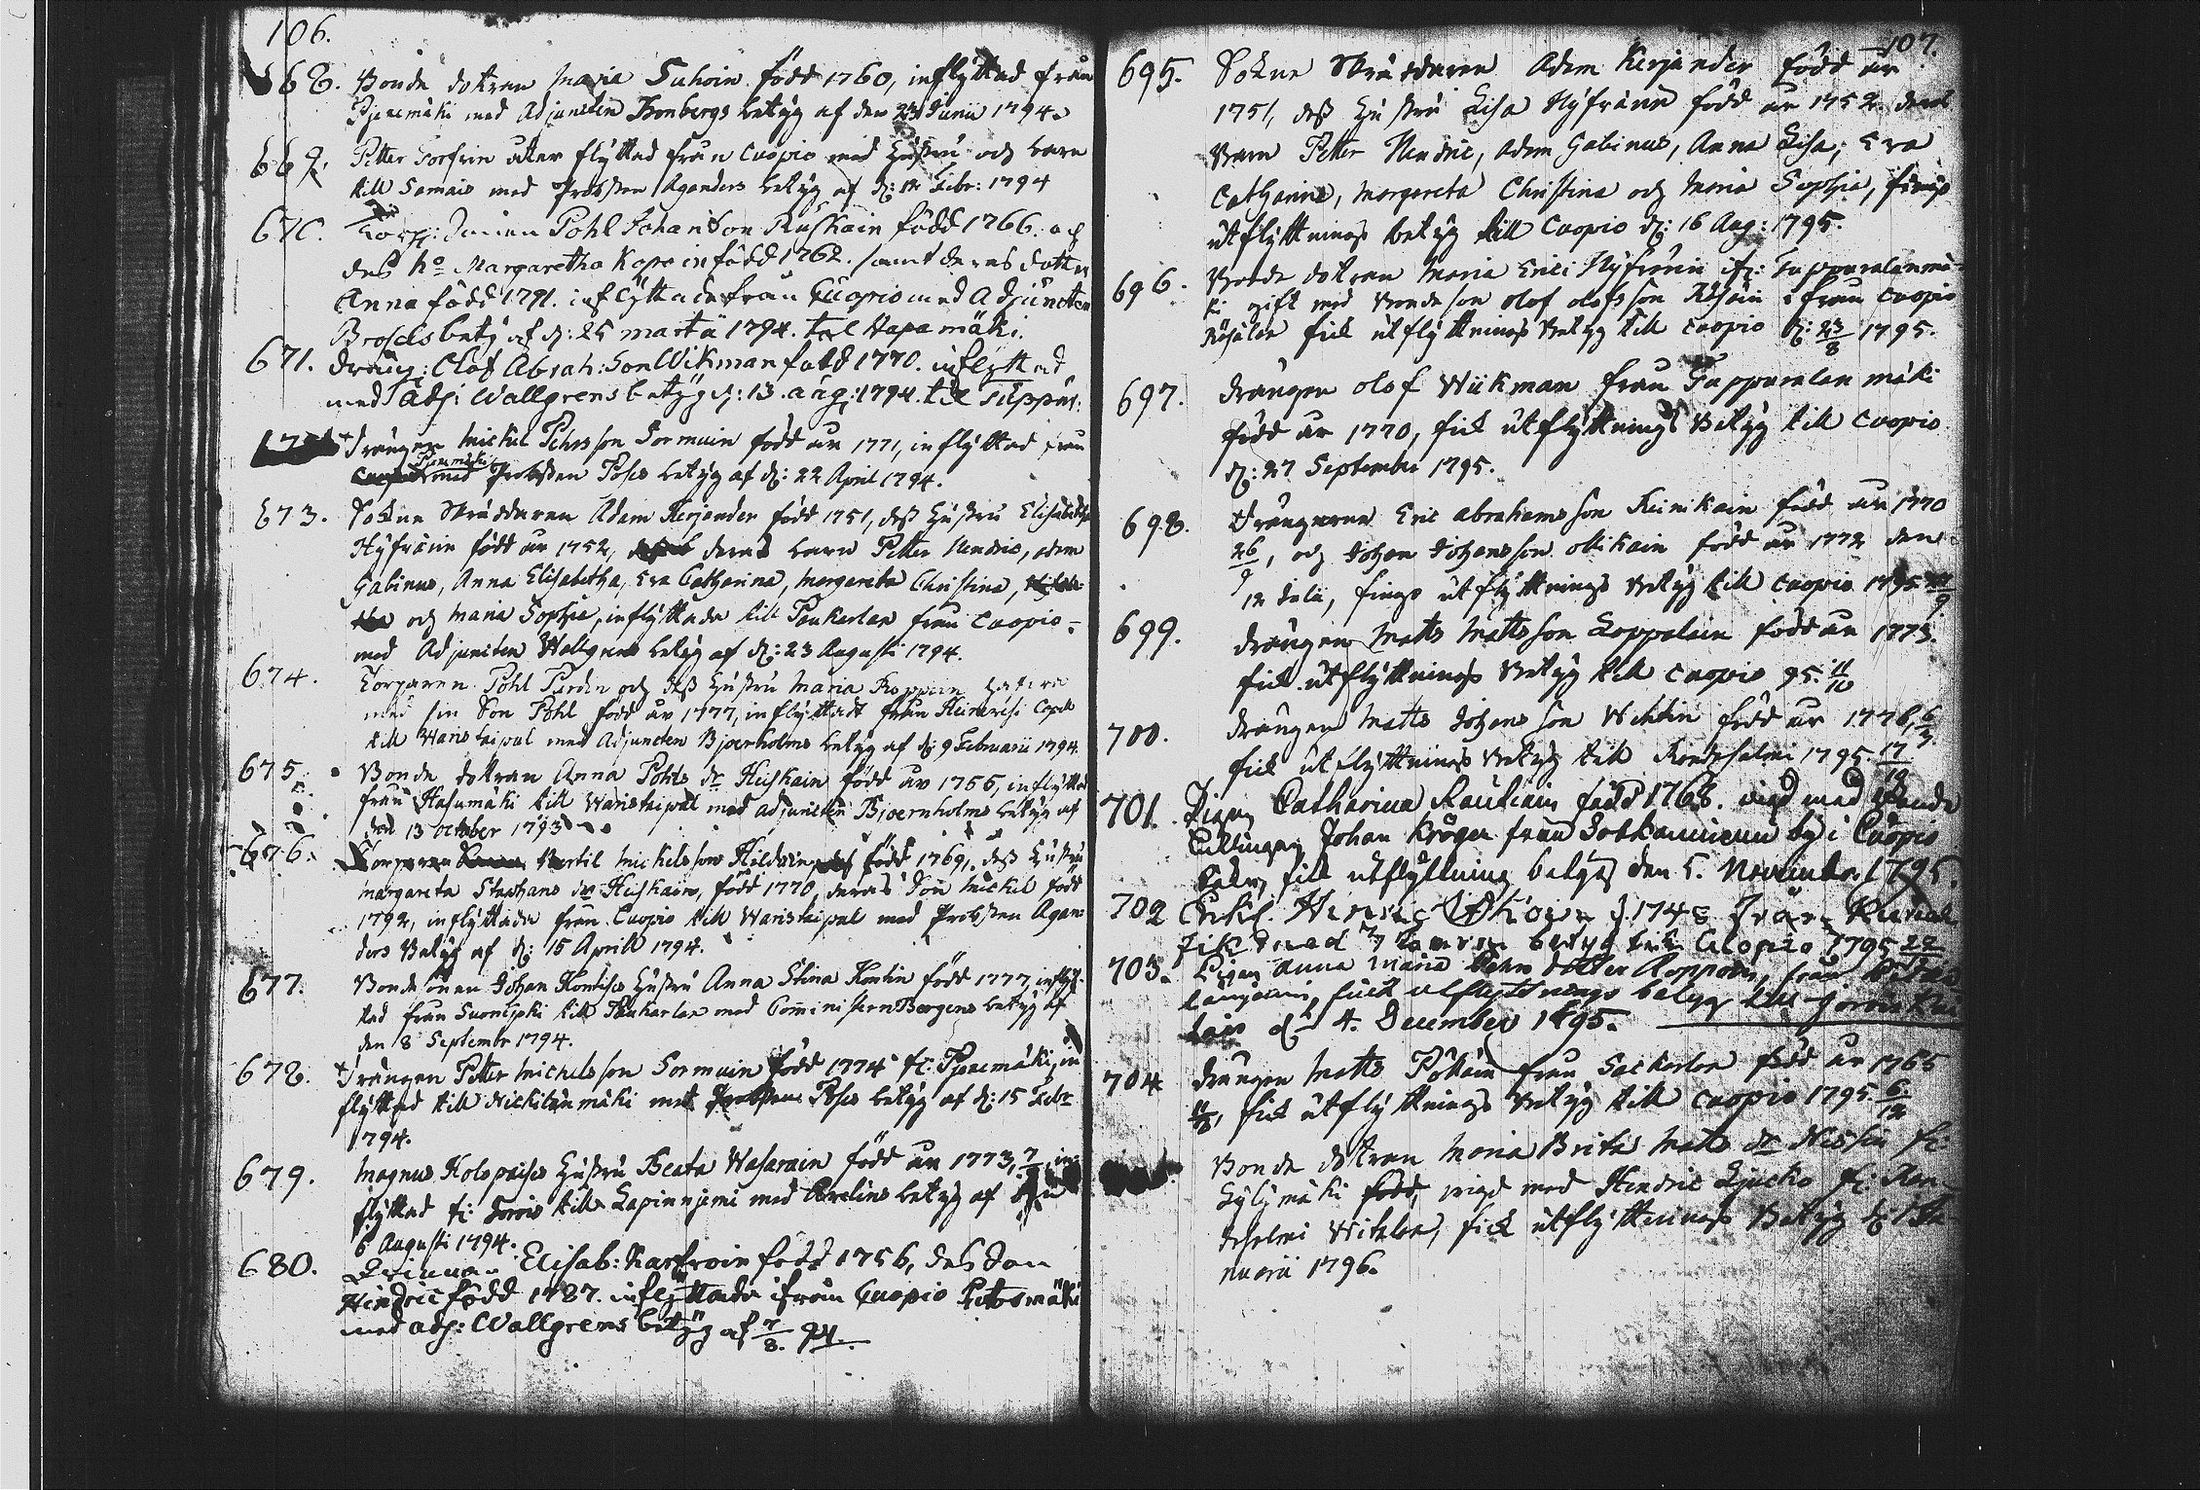 106.
668. Bonde dottren Maria Suhoin född 1760, inflyttad från
Pjenemäki med Adjuncten Kronbergs betyg af den 23 Junii 1794.
669. Petter Sorsrin åter flyttad från Cuopio med Hustru och barn
till Samais med Probsten Aganders betyg af d: 12 Febr: 1794
670. Torp: Pohl Johansson Ruskain född 1766. och
des ho Margaretha Kopoin född 1762. samt deras dotter
Anna född 1791. inflyttade från Cuopio med Adjuncten
Brosels betyg af d: 25 martii 1794. till Hapamäki.
671. dräng: Olof Abrah: Son Wikman född 1770. inflyttad
med Adj: Wallgrens betyg d: 13. aug: 1794. till
Drängen Michel Pehrsson Sormuin född år 1771, inflyttad från
Pjenemäki
med Probsten Poses betyg af d: 22 April 1794.
673. Sokne Skräddaren Adam Kerjander född 1751, dess Hustru Elisabetha
Hyfräin född år 1752, deras barn Petter Hendric, Adam
Gabinus, Anna Elisabetha, Eva Catharina, Margareta Christina,
och Maria Sophia, inflyttade till Paukarlax från Cuopio
med Adjuncten Wallgrens betyg af d: 23 Augusti 1794.
674. Torparen Pohl Parde och dess Hustru Maria Koppoin
med sin Son Pohl född år 1777, inflyttadt från Capell
till Waristaipal med Adjuncten Bjoerholms betyg af d: 9 Februarii 1794.
675. Bonde dottran Anna Pohls dr Huskain född år 1766, inflyttad
från Hasumäki till Waristaipal med adjuncten Bjoernholms betyg af
den 13 october 1793
676. Torparen Bertil Michelsson Hildein född 1769, dess Hustru
Margareta Staphans dr Huskain, född 1770, deras Son Michel född
1792, inflyttade från Cuopio till Waristaipal med Probsten Agan
ders Betyg af d: 15 Aprill 1794.
677. Bonde sonen Johan Kontises Hustru Anna Stina Kontin född 1777, inflyt
tad från Suonejoki till Paukarlax med Comministern Bergens betyg af
den 8 September 1794.
678. Drängen Petter Michelsson Sormuin född 1774 fr: Pjenemäki, in
flyttad till Nickilänmäki med Probstens Poses betyg af d: 15 Febr
1794.
679. Magnus Kolopaises Hustru Beata Wasarain född år 1773, in
flyttad fr: Jorois till Lapinnjemi med Arelins betyg af
6 Augusti 1794.
680. Qvinnan Elisab: Karhroin född 1756, des Son
Hindric född 1787. inflyttade ifrån Cuopio Petosmäki
med adj: Wallgrens betyg af 7/8. 94.
107.
695. Sokne Skräddaren Adam Kerjander född år
1751, dess Hustru Lisa Hyfräin född år 1752. deras
Barn Petter Hendric, Adam Gabinus, Anna Lisa, Eva
Catharina, Margareta Christina och Maria Sophia, fingo
utflyttnings betyg till Cuopio d: 16 Aug: 1795.
696. Bonde dottran Maria Erici Hyfröin ifr: Tappuralanmä
ki gift med Bonde son Olof Olofsson Räsäin ifrån Cuopio
Räsälä fick utflyttnings Betyg till Cuopio d: 23/8 1795.
697. drängen Olof Wiikman från Tappuralan mäki
född år 1770, fick utflyttnings Betyg till Cuopio
d: 27 Septembr 1795.
698. Drängarne Eric Abrahamsson Kuinikain född år 1770
26/9, och Johan Johansson Ollikain född år 1772 den
12 Julii, fingo utflyttnings Betyg till Cuopio 1795
699. drängen Matts Mattsson Loppolain född år 1773.
fick utflyttnings Betyg till Cuopio 95. 11/10
700. drängen Matts Johansson Wihtin född år 1778, 6/7.
fick utflyttnings Betyg till Randasalmi 1795. 17/10
701. Pigan Catharina Rautiain född 1768. vigd med Bonde
Johan Kröger från Jotkanniemi by i Cuopio
Sokn, fick utflyttning betyg den 5. November 1795.
702 f. 1748 från
fik med betyg till Cuopio 1795 22
703. Pigan Anna Maria Pehrs dotter Ropponen, från
fick utflyttnings betyg till Jorois
d: 4. December 1795.
704 drängen Matts Pökäin från Sackarla född år 1765
11/8, fick utflyttnings Betyg till Cuopio 1795. 6/12
Bonde dottran Maria Brita Mats dr Nissin fr:
Lylymäki vigd med Hendric Ljucko fr: Ran
dasalmi Witikka, fick utflyttnings Betyg d: 1 Ja
nuarii 1796.